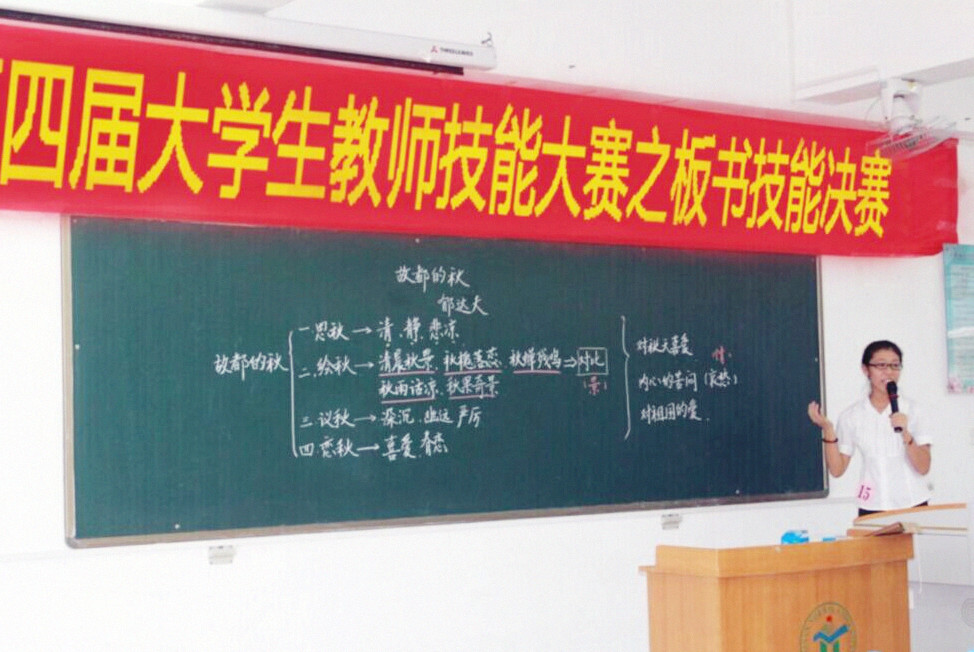 四届大学生教师技能大赛之板书技能决赛
故都的秋
郁达夫
故都的秋
一.思秋→清、静、悲凉
二.绘秋→清晨秋景、秋槐落蕊、秋蝉残鸣⇒对比
秋雨话凉、秋果奇景
(景)
三.议秋→深沉、幽远、严厉
四.恋秋→喜爱、眷恋
对秋天喜爱
情:
内心的苦闷(哀愁)
对祖国的爱.
15